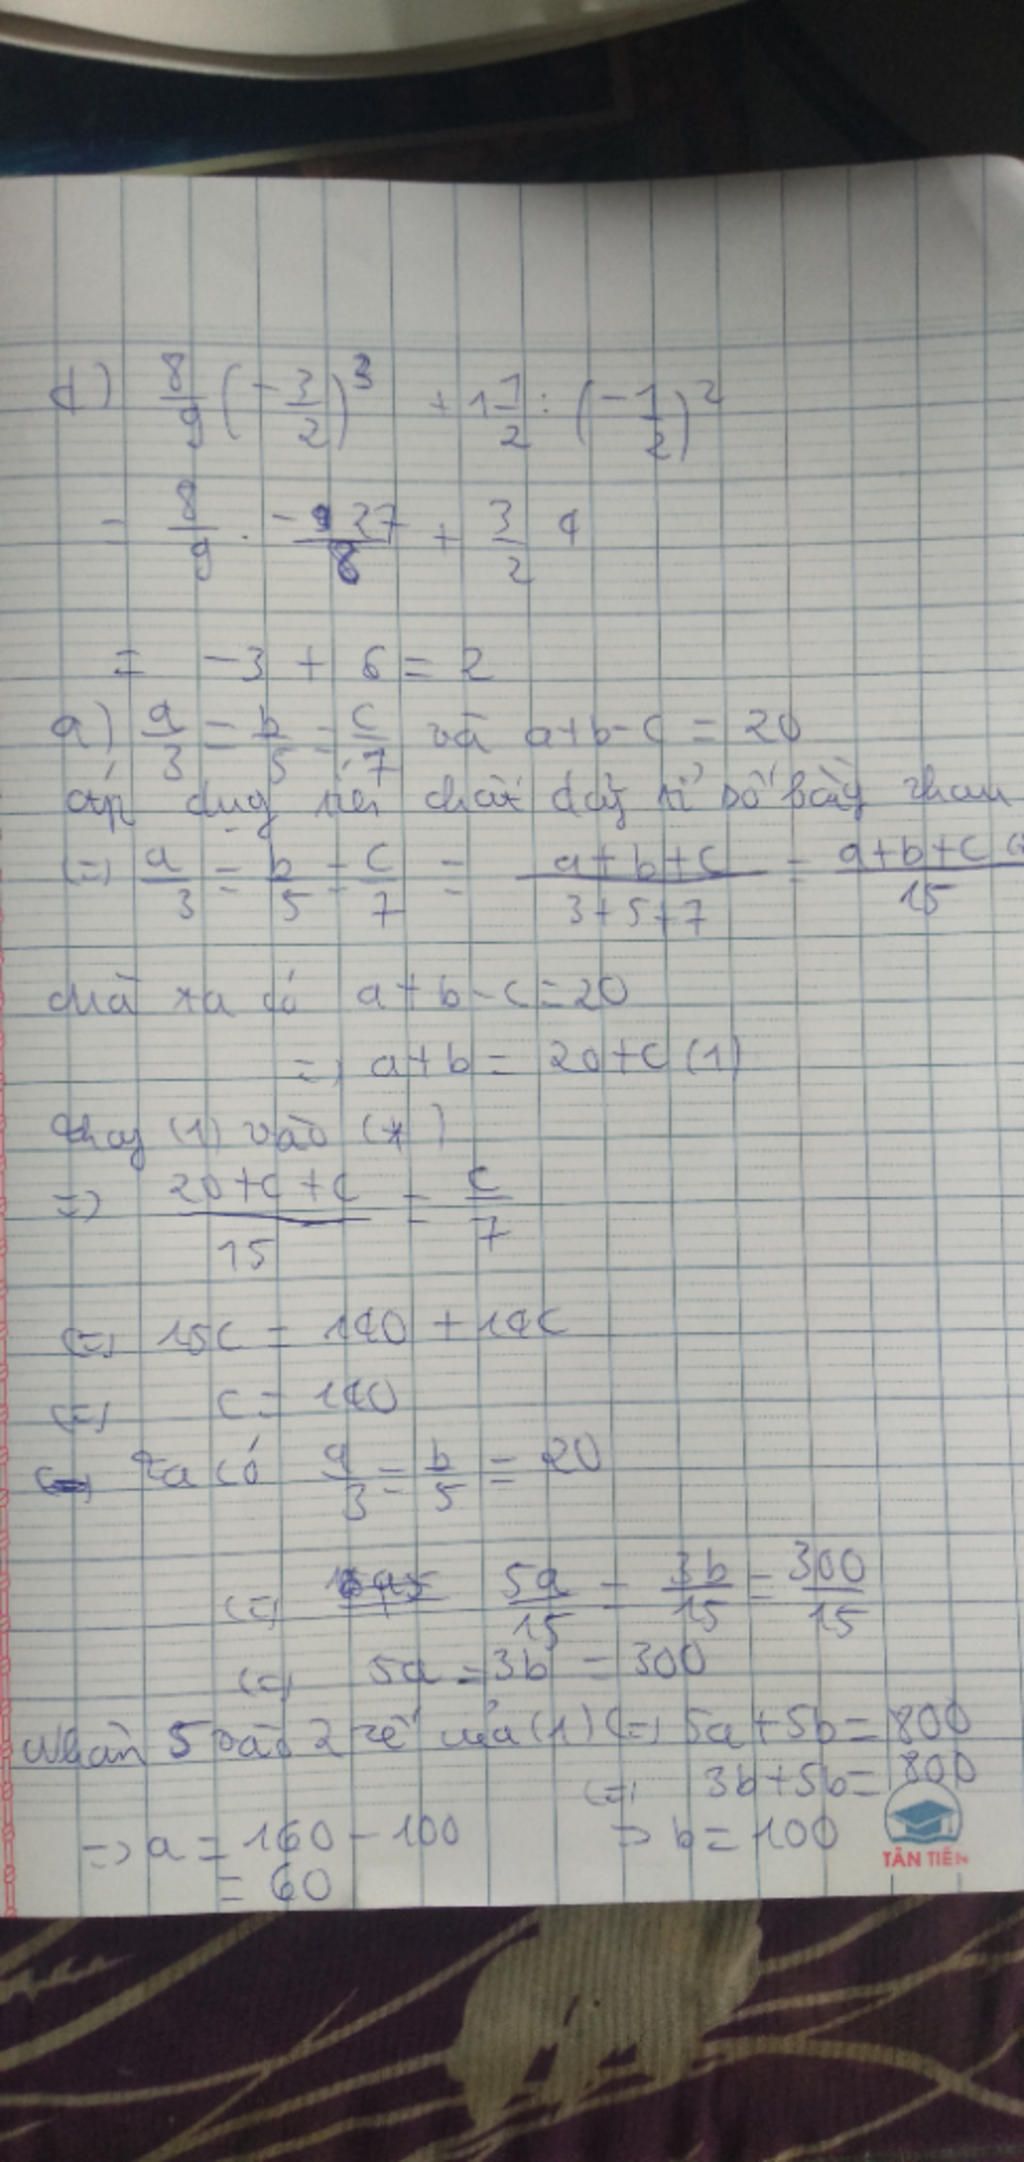 d) 8/9 (-3/2)^3 + 1 1/2 : (-1/2)^2
= 8/9 . -27/8 + 3/2 4
= -3 + 6 = 2
a) a/3 = b/5 = c/7 và a+b-c = 20
áp dụng tính chất dãy tỉ số bằng nhau
(=) a/3 = b/5 = c/7 = a+b+c/3+5+7 = a+b+c/15
mà ta có a+b-c=20
=) a+b = 20+c (1)
thay (1) vào (*)
=) 20+c+c/15 = c/7
(=) 15c = 140 + 14c
(=) c = 140
ta có a/3 = b/5 = 20
(=) 5a/15 = 3b/15 = 300/15
(=) 5a = 3b = 300
Nhân 5 vào 2 vế của (1) (=) 5a+5b = 800
(=) 3b+5b = 800
=) a = 160 - 100 => b = 100
= 60
TÂN TIẾN